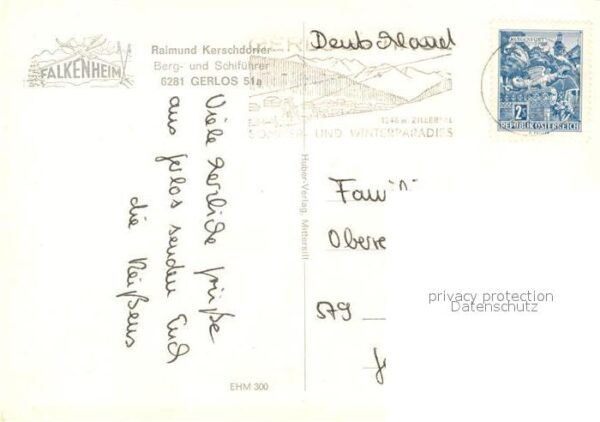 FALKENHEIM
Raimund Kerschdorfer
Berg- und Schiführer
6281 GERLOS 51a
Viele herzliche Grüße
aus Gerlos senden Euch
die Reißens
EHM 300
Huber-Verlag, Mittersill
GERLOS
1246 m ZILLERTAL
SOMMER UND WINTERPARADIES
Deutschland
KLAGENFURT
2S
REPUBLIK ÖSTERREICH
Obere
579
privacy protection
Datenschutz